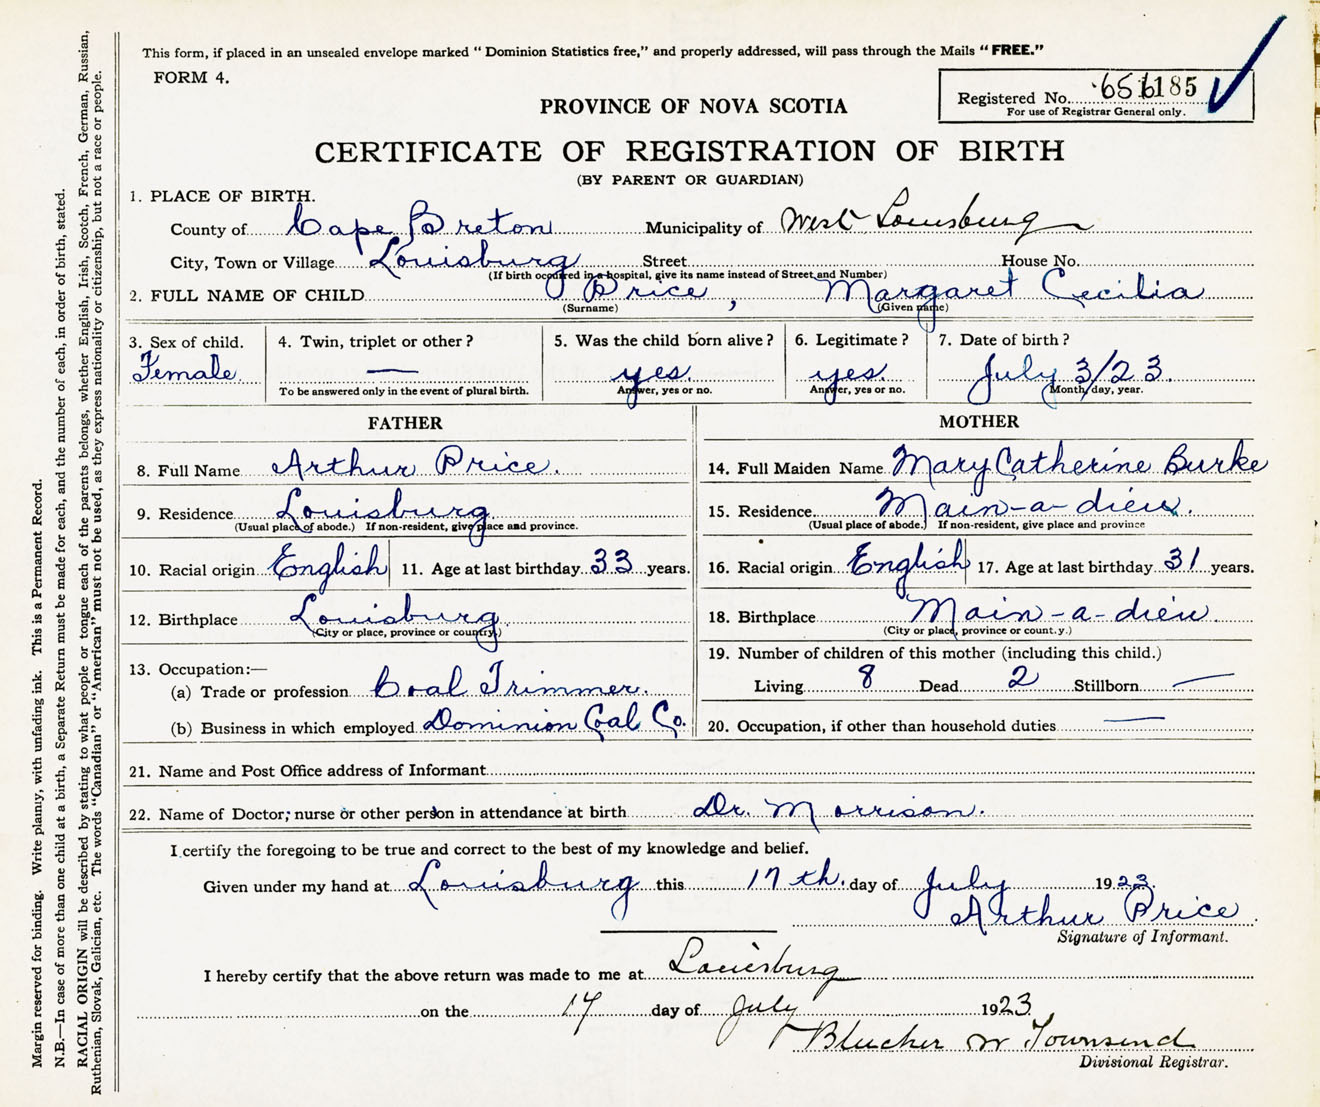 This form, if placed in an unsealed envelope marked "Dominion Statistics free," and properly addressed, will pass through the Mails "FREE."
FORM 4.
Registered No. 185
For use of Registrar General only.
PROVINCE OF NOVA SCOTIA
CERTIFICATE OF REGISTRATION OF BIRTH
(BY PARENT OR GUARDIAN)
1. PLACE OF BIRTH.
County of Cape Breton Municipality of West Louisburg
City, Town or Village Louisburg Street House No.
(If birth occurred in a hospital, give its name instead of Street and Number)
2. FULL NAME OF CHILD Price, Margaret Cecilia
(Surname) (Given name)
3. Sex of child. 4. Twin, triplet or other? 5. Was the child born alive? 6. Legitimate? 7. Date of birth?
Female — yes. yes. July 3/23.
To be answered only in the event of plural birth. Answer, yes or no. Answer, yes or no. Month, day, year.
FATHER MOTHER
8. Full Name Arthur Price. 14. Full Maiden Name Mary Catherine Burke
9. Residence Louisburg 15. Residence Main-a-dieu.
(Usual place of abode.) If non-resident, give place and province. (Usual place of abode.) If non-resident, give place and province
10. Racial origin English 11. Age at last birthday 33 years. 16. Racial origin English 17. Age at last birthday 31 years.
12. Birthplace Louisburg 18. Birthplace Main-a-dieu
(City or place, province or country.) (City or place, province or count.y.)
13. Occupation:— 19. Number of children of this mother (including this child.)
(a) Trade or profession Coal Trimmer. Living 8 Dead 2 Stillborn —
(b) Business in which employed Dominion Coal Co. 20. Occupation, if other than household duties —
21. Name and Post Office address of Informant
22. Name of Doctor; nurse or other person in attendance at birth Dr. Morrison.
I certify the foregoing to be true and correct to the best of my knowledge and belief.
Given under my hand at Louisburg this 17th. day of July 1923.
Arthur Price
Signature of Informant.
I hereby certify that the above return was made to me at Louisburg
on the 17 day of July 1923
Blucher W Townsend
Divisional Registrar.
Margin reserved for binding. Write plainly, with unfading ink. This is a Permanent Record.
N.B.—In case of more than one child at a birth, a Separate Return must be made for each, and the number of each, in order of birth, stated.
RACIAL ORIGIN will be described by stating to what people or tongue each of the parents belongs, whether English, Irish, Scotch, French, German, Russian,
Ruthenian, Slovak, Galician, etc. The words "Canadian" or "American" must not be used, as they express nationality or citizenship, but not a race or people.